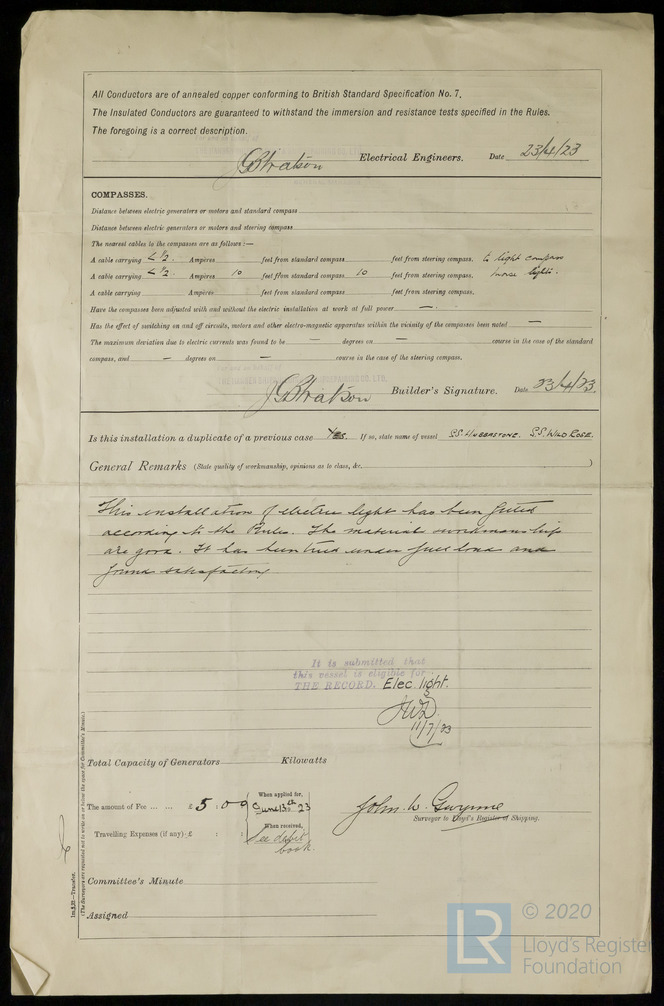 All Conductors are of annealed copper conforming to British Standard Specification No. 7.
The Insulated Conductors are guaranteed to withstand the immersion and resistance tests specified in the Rules.
The foregoing is a correct description.
Electrical Engineers. Date 23/4/23
COMPASSES.
Distance between electric generators or motors and standard compass
Distance between electric generators or motors and steering compass
The nearest cables to the compasses are as follows:—
A cable carrying < ½. Ampères feet from standard compass feet from steering compass. to light compass
A cable carrying < ½. Ampères 10 feet from standard compass 10 feet from steering compass. house lights.
A cable carrying Ampères feet from standard compass feet from steering compass.
Have the compasses been adjusted with and without the electric installation at work at full power —
Has the effect of switching on and off circuits, motors and other electro-magnetic apparatus within the vicinity of the compasses been noted —
The maximum deviation due to electric currents was found to be — degrees on — course in the case of the standard
compass, and — degrees on — course in the case of the steering compass.
Builder's Signature. Date 23/4/23.
Is this installation a duplicate of a previous case Yes. If so, state name of vessel S.S. Hubbastone. S.S. Wild Rose.
General Remarks (State quality of workmanship, opinions as to class, &c. )
This installation of electric light has been fitted
according to the Rules. The material workmanship
are good. It has been tried under full load and
found satisfactory
It is submitted that
this vessel is eligible for
THE RECORD. Elec. light.
11/7/23
Total Capacity of Generators Kilowatts
The amount of Fee ... ... £ 5 : 0 0
When applied for,
June 13th 23
When received,
See debit
book.
Travelling Expenses (if any) £ : :
John W. Gwynne
Surveyor to Lloyd's Register of Shipping.
Committee's Minute
Assigned
(The Surveyors are requested not to write on or below the space for Committee's Minute.)
© 2020
LR
Lloyd's Register
Foundation